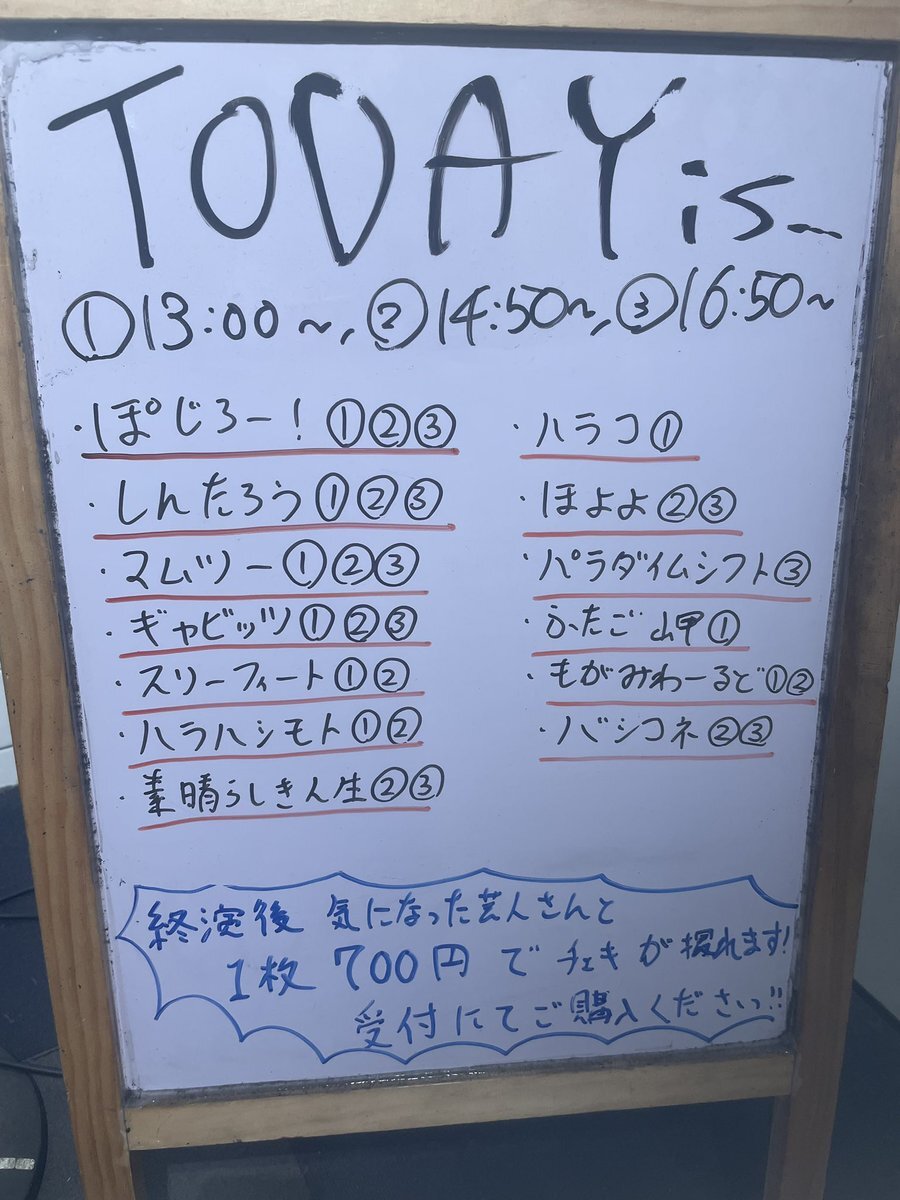 TODAY is~
①13:00~, ②14:50~, ③16:50~
・ぽじろー!①②③
・しんたろう①②③
・マムツー①②③
・ギャビッツ①②③
・スリーフィート①②
・ハラハシモト①②
・素晴らしきん生②③
・ハラコ①
・ほよよ②③
・パラダイムシフト③
・ふたご山甲①
・もがみわーるど①②
・バシコネ②③
終演後 気になった芸人さんと
1枚 700円 で チェキ が 撮れます!
受付にてご購入くださいっ!!